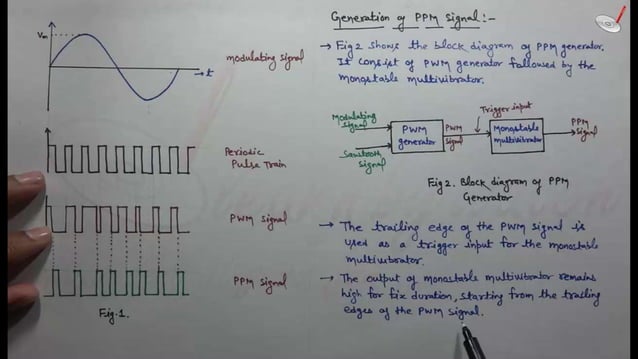 Vm
→ t
modulating signal
Periodic
Pulse Train
PWM signal
PPM signal
Fig.1.
Generation of PPM Signal:-
→ Fig 2 shows the block diagram of PPM generator.
It consist of PWM generator followed by the
monostable multivibrator.
Modulating
Signal
Sawtooth
Signal
PWM
generator
PWM
signal
Trigger input
Monostable
multivibrator
PPM
Signal
Fig 2. Block diagram of PPM
Generator
→ The trailing edge of the PWM signal is
used as a trigger input for the monostable
multivibrator.
→ The output of monostable multivibrator remains
high for fix duration, starting from the trailing
edges of the PWM signal.